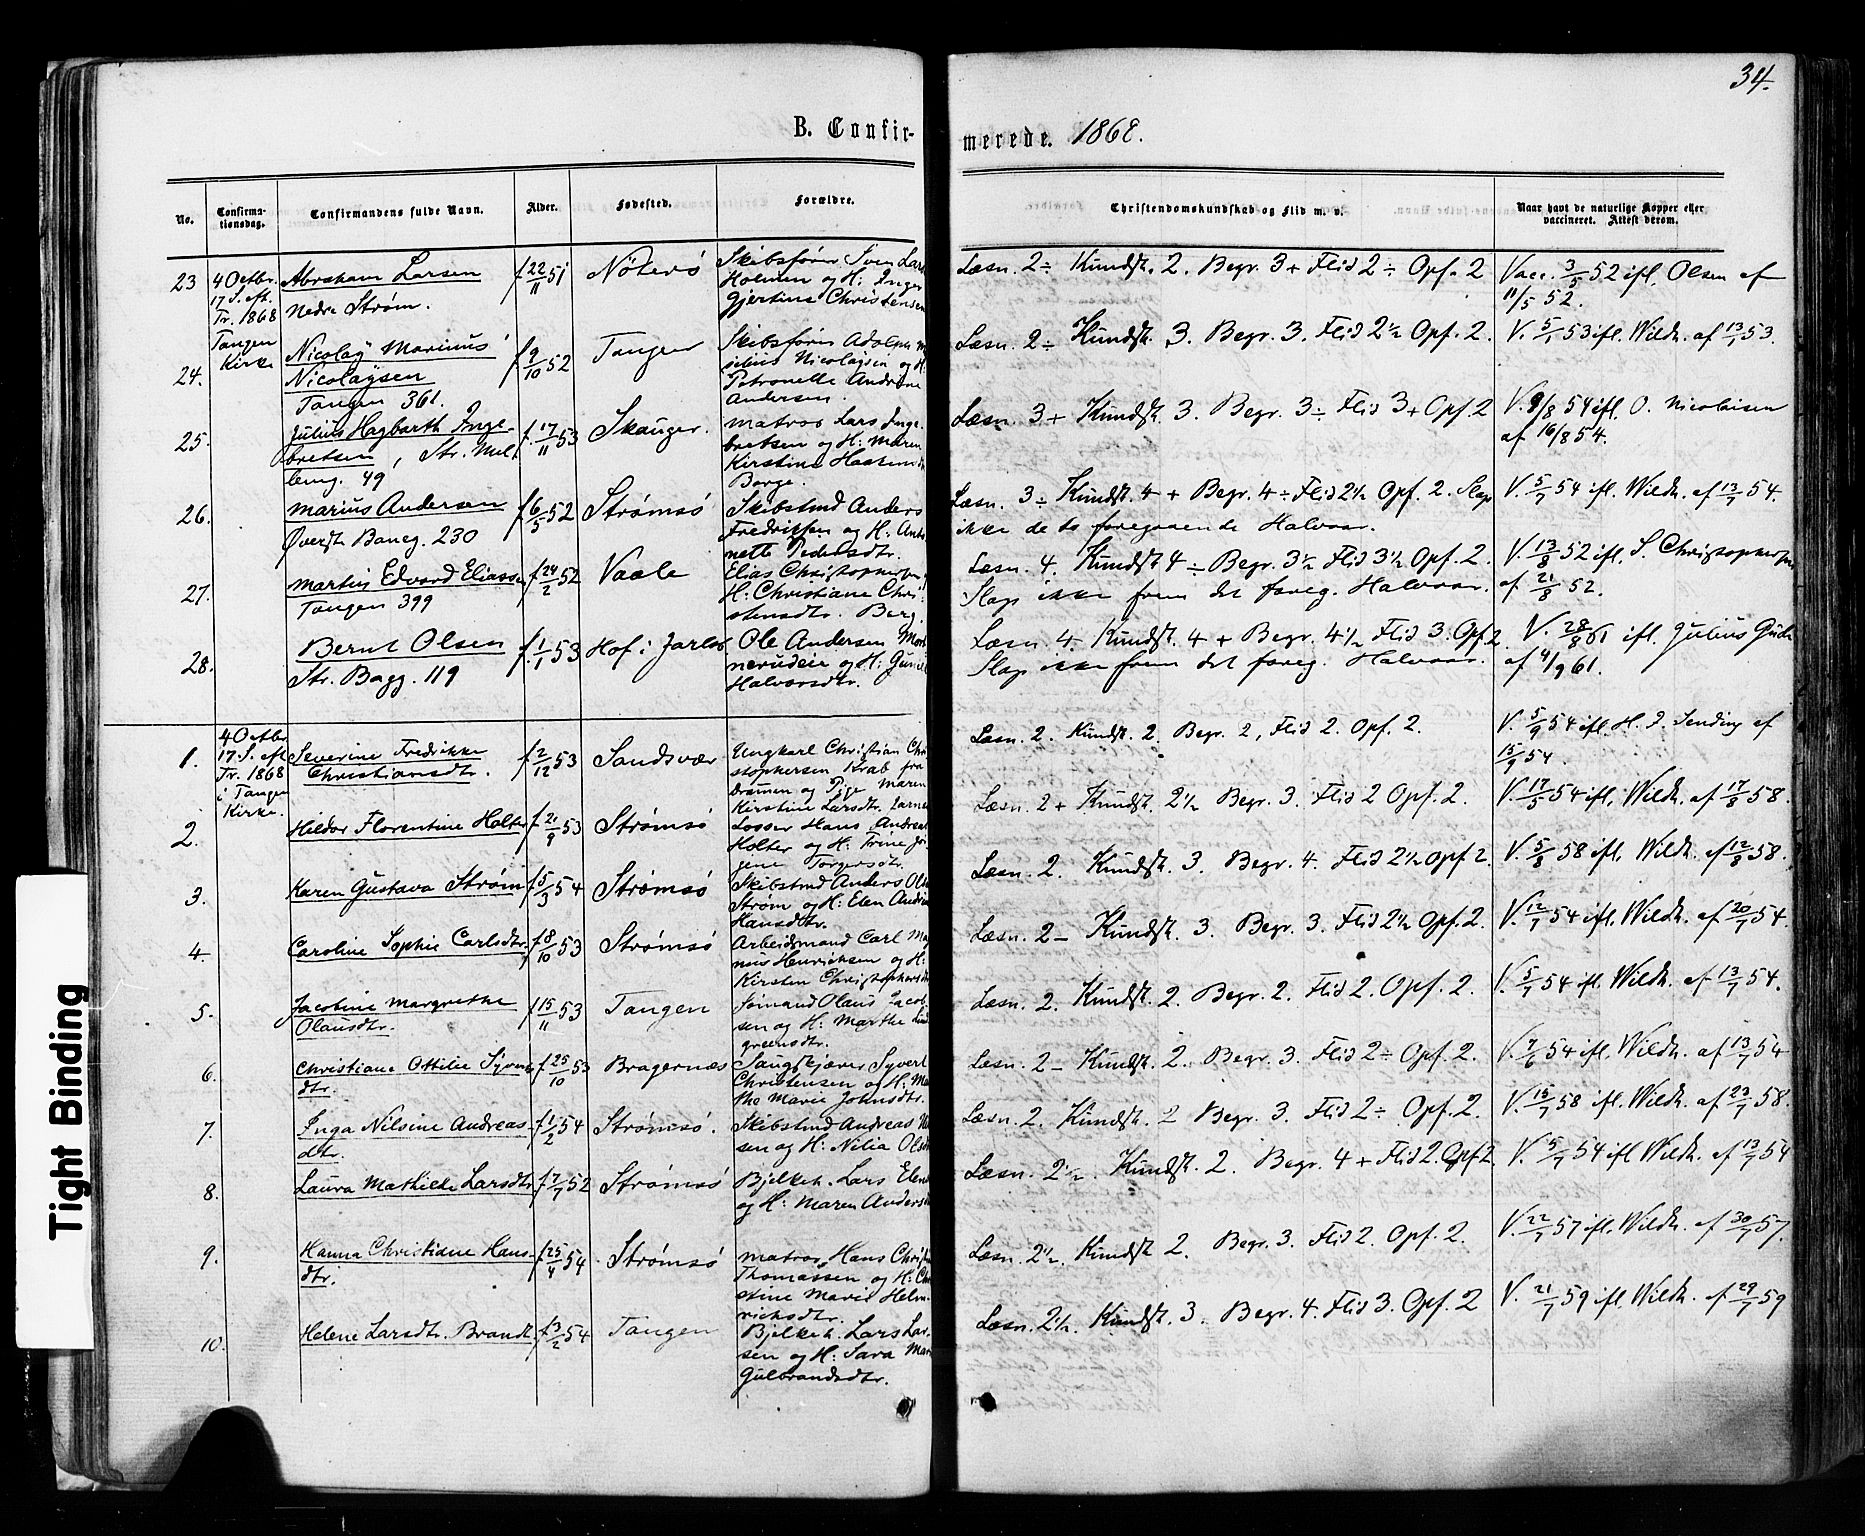 34.
B. Confir-
merede. 1868.
No.
Confirma-
tionsdag.
Confirmandens fulde Navn.
Alder.
Fødested.
Forældre.
Christendomskundskab og Flid m. v.
Naar havt de naturlige Kopper eller
vaccineret. Attest derom.
23
4 Octbr.
17 S. eft.
Tr. 1868
Tangen
Kirke
Abraham Larsen
Nedre Strøm.
f. 22/11 51
Nøterø
Skibsfører Sven Lars
Holmen og H: Inger
Gjertine Christensen
Læsn. 2 ÷ Kundsk. 2. Begr. 3 + Flid 2 ÷ Opf. 2
Vacc. 3/5 52 ifl. Olsen af
11/5 52.
24.
Nicolaÿ Marinus
Nicolaÿsen
Tangen 361.
f. 9/10 52
Tangen
Skibsfører Adolph
Nicolaÿsen og H:
Petronelle Andrine
Andersen.
Læsn. 2 ÷ Kundsk. 3. Begr. 3. Flid 2 1/2 Opf. 2.
V. 5/7 53 ifl. Wildh. af 13/7 53.
25.
Julius Hagbarth Inge-
bretsen, Str.
49
f. 17/11 53
Skauger.
Matros Lars Inge-
bretsen og H: Maren
Kirstine
Borge.
Læsn. 3 + Kundsk. 3. Begr. 3 ÷ Flid 3 + Opf. 2
V. 9/8 54 ifl. O. Nicolaisen
af 16/8 54.
26.
Marius Andersen
Øverste Baneg. 230
f. 6/5 52
Strømsø
Skibstmd Anders
Fredriksen og H: Anto
nette Pedersdtr.
Læsn. 3 ÷ Kundsk. 4 + Begr. 4 ÷ Flid 2 1/2 Opf. 2. Slap
ikke de to foregaaende Halvaar.
V. 5/7 54 ifl. Wildh. af 13/7 54.
27.
Martin Edvard Eliassen
Tangen 399
f. 24/2 52
Vaale
Elias Christophersen
H: Christiane Chri-
stensdtr. Berg.
Læsn. 4. Kundsk. 4 ÷ Begr. 3 1/2 Flid 3 1/2 Opf. 2.
Slap ikke frem det foreg. Halvaar.
V. 13/8 52 ifl. S. Christophersen
af 21/8 52.
28.
Bernt Olsen
Str. Bagg. 119
f. 1/1 53
Hof i Jarlsb
Ole Andersen Mort
nerudeie og H: Gunil
Halvorsdtr.
Læsn. 4 Kundsk. 4 + Begr. 4 1/2 Flid 3. Opf. 2
Slap ikke frem det foreg. Halvaar.
V. 28/8 61 ifl. Julius
af 4/9 61.
1.
4 Octbr.
17 S. eft
Tr. 1868
i Tangen
Kirke.
Severine Fredrikke
Christiansdtr.
f. 2/12 53
Sandsvær
Ungkarl Christian Chri
stophersen Krab fra
Dramen og Pige Maren
Kirstine Larsdtr.
Læsn. 2. Kundsk. 2. Begr. 2, Flid 2. Opf. 2.
V. 5/9 54 ifl. H. J. Sending af
15/9 54.
2.
Hildor Florentine Holter
f. 21/9 53
Strømsø
Losser Hans Andreas
Holter og H: Trine Jør
gene Torgersdtr.
Læsn. 2 + Kundsk. 2 1/2 Begr. 3. Flid 2 Opf. 2.
V. 17/5 54 ifl. Wildh. af 17/8 58.
3.
Karen Gustava Strøm
f. 5/3 54
Strømsø
Skibstmd Anders Olse
Strøm og H: Elen Andrin
Hansdtr.
Læsn. 2. Kundsk. 3. Begr. 4. Flid 2 1/2 Opf. 2.
V. 5/8 58 ifl. Wildh. af 12/8 58.
4.
Caroline Sophie Carlsdtr.
f. 8/10 53
Strømsø
Arbeidsmand Carl Mag
nus Henriksen og H:
Kirsten Christophersdtr
Læsn. 2 – Kundsk. 3. Begr. 3. Flid 2 1/2 Opf. 2.
V. 12/7 54 ifl. Wildh. af 20/7 54.
5.
Jacobine Margrethe
Olausdtr.
f. 15/11 53
Tangen
Sømand Olaus Jacob-
sen og H: Marthe Lind
greensdtr.
Læsn. 2. Kundsk. 2. Begr. 2. Flid 2. Opf. 2.
V. 5/7 54 ifl. Wildh. af 13/7 54.
6.
Christiane Ottilie Syverts
dtr.
f. 25/10 53
Bragernæs
Saugskjærer Syvert
Christensen og H: Mar
the Marie Johnsdtr.
Læsn. 2 – Kundsk. 2. Begr. 3. Flid 2 ÷ Opf. 2.
V. 7/6 54 ifl. Wildh. af 13/7 54
7.
Inga Nilsine Andreas-
dtr.
f. 1/2 54
Strømsø.
Skibstmd Andreas Nil
sen og H: Nilia Olsdtr
Læsn. 2. Kundsk. 2 Begr. 3. Flid 2 ÷ Opf. 2.
V. 15/7 58 ifl. Wildh. af 23/7 58.
8.
Laura Mathilde Larsdtr
f. 7/7 52
Strømsø
Bjelkeh. Lars
og H: Maren Andersd
Læsn. 2 1/2. Kundsk. 2. Begr. 4 + Flid 2. Opf. 2
V. 5/7 54 ifl. Wildh. af 13/7 54
9.
Hanna Christiane Hans-
dtr.
f. 25/4 54
Strømsø
Matros Hans Christ
Thomassen og H: Chri
stine Marie Helm-
richsdtr.
Læsn. 2 1/2. Kundsk. 2. Begr. 3. Flid 2. Opf. 2.
V. 22/7 57 ifl. Wildh. af 30/7 57.
10.
Helene Larsdtr. Brandt
f. 3/2 54
Tangen
Bjelkeh. Lars Lar-
sen og H: Sara Mar
Gulbrandsdtr.
Læsn. 2 1/2. Kundsk. 3. Begr. 4. Flid 3. Opf. 2
V. 21/7 59 ifl. Wildh. af 29/7 59
Tight Binding